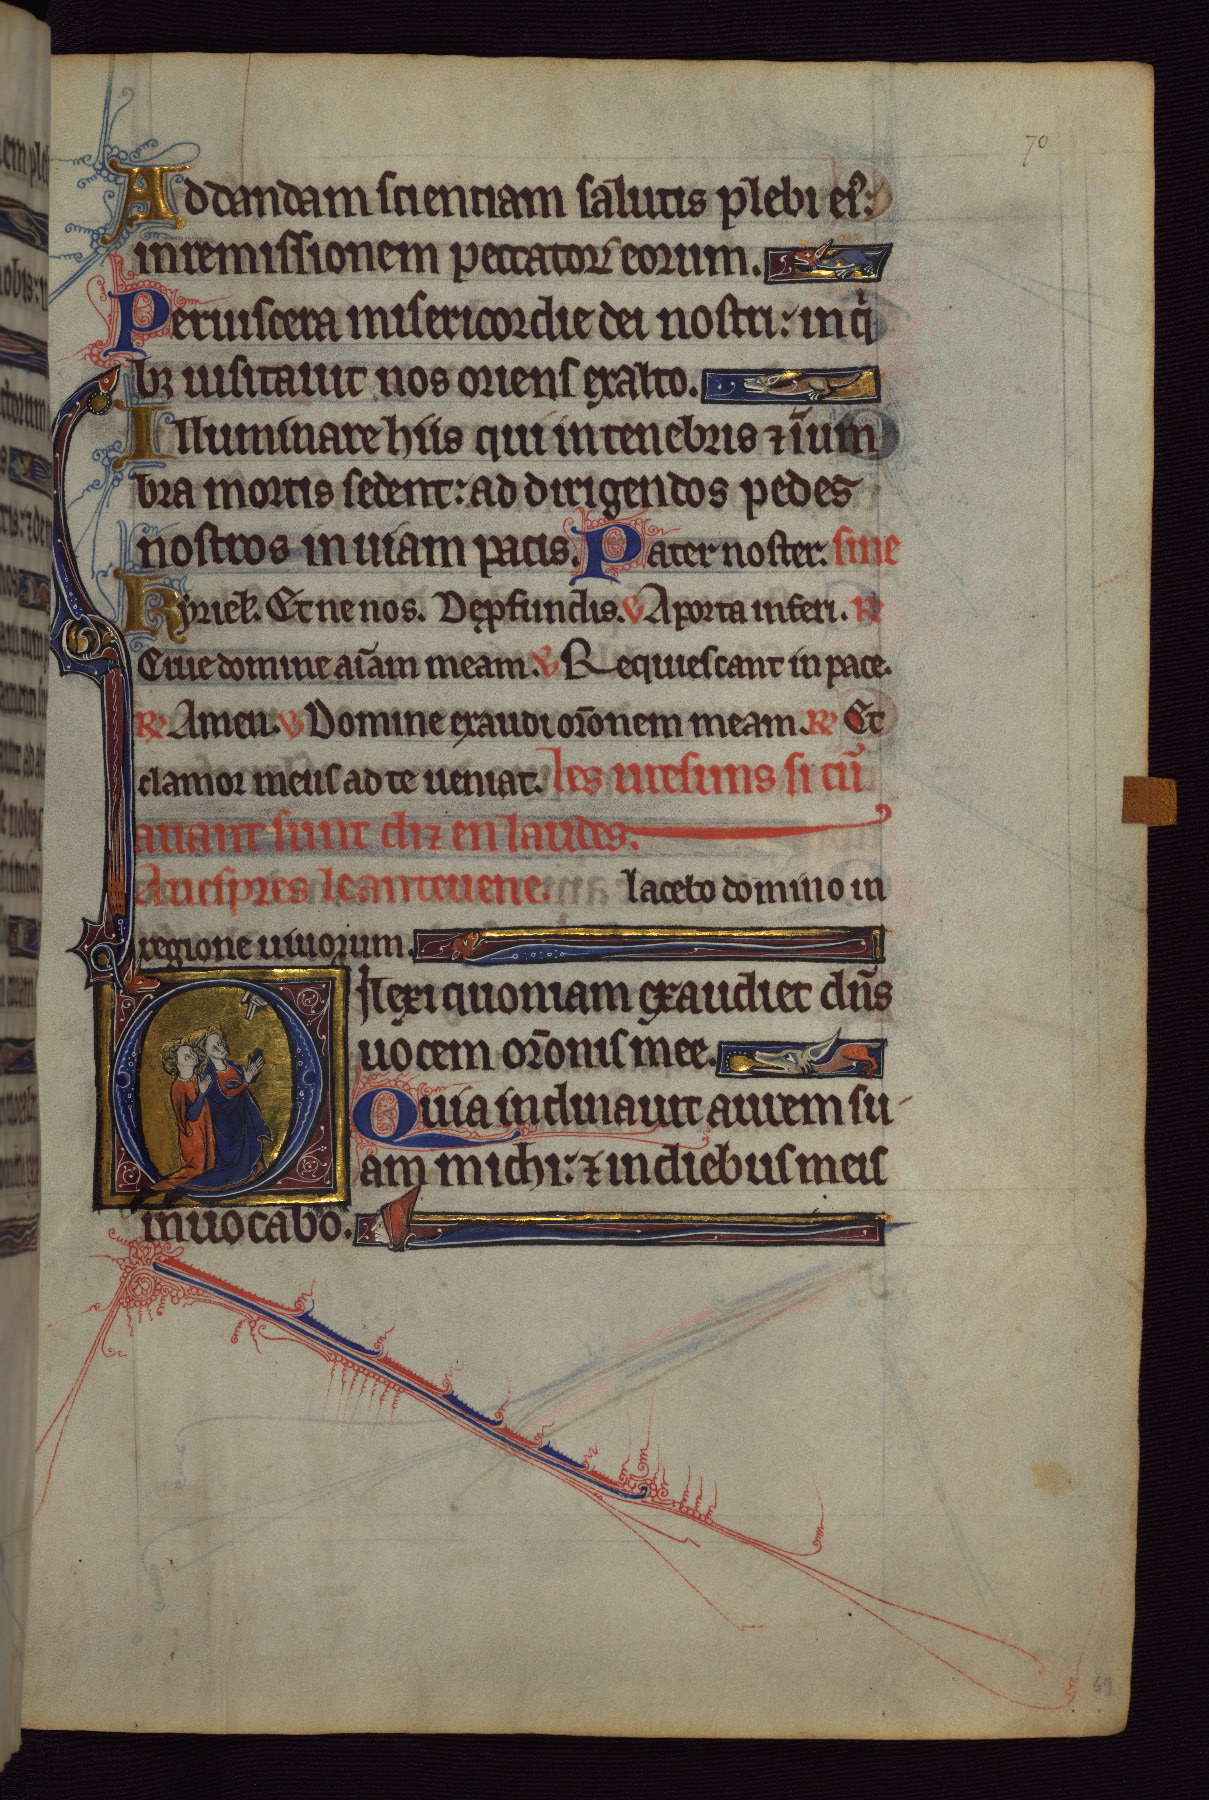 70
Ad dandam scientiam salutis plebi ei͛:
in remissionem peccatoꝝ eorum.
Per uiscera misericordie dei nostri: in q̇
bꝫ uisitauit nos oriens ex alto.
Illuminare hiis qui in tenebris ⁊ ī um
bra mortis sedent: ad dirigendos pedes
nostros in uiam pacis. Pater noster: sine
Kyriel̄. Et ne nos. De ꝓfundis. ℣ A porta inferi. ℟
Erue domine aīam meam. ℣ Requiescant in pace.
℟ Amen. ℣ Domine exaudi orōnem meam. ℟ Et
clamor meus ad te ueniat. les uresuns si cū
auant sunt diz en laudes.
A uespres le anteuene. lacebo domino in
regione uiuorum.
Dilexi quoniam exaudiet dn̄s
uocem orōnis mee.
Quia inclinauit aurem su-
am michi: ⁊ in diebus meis
inuocabo.
69